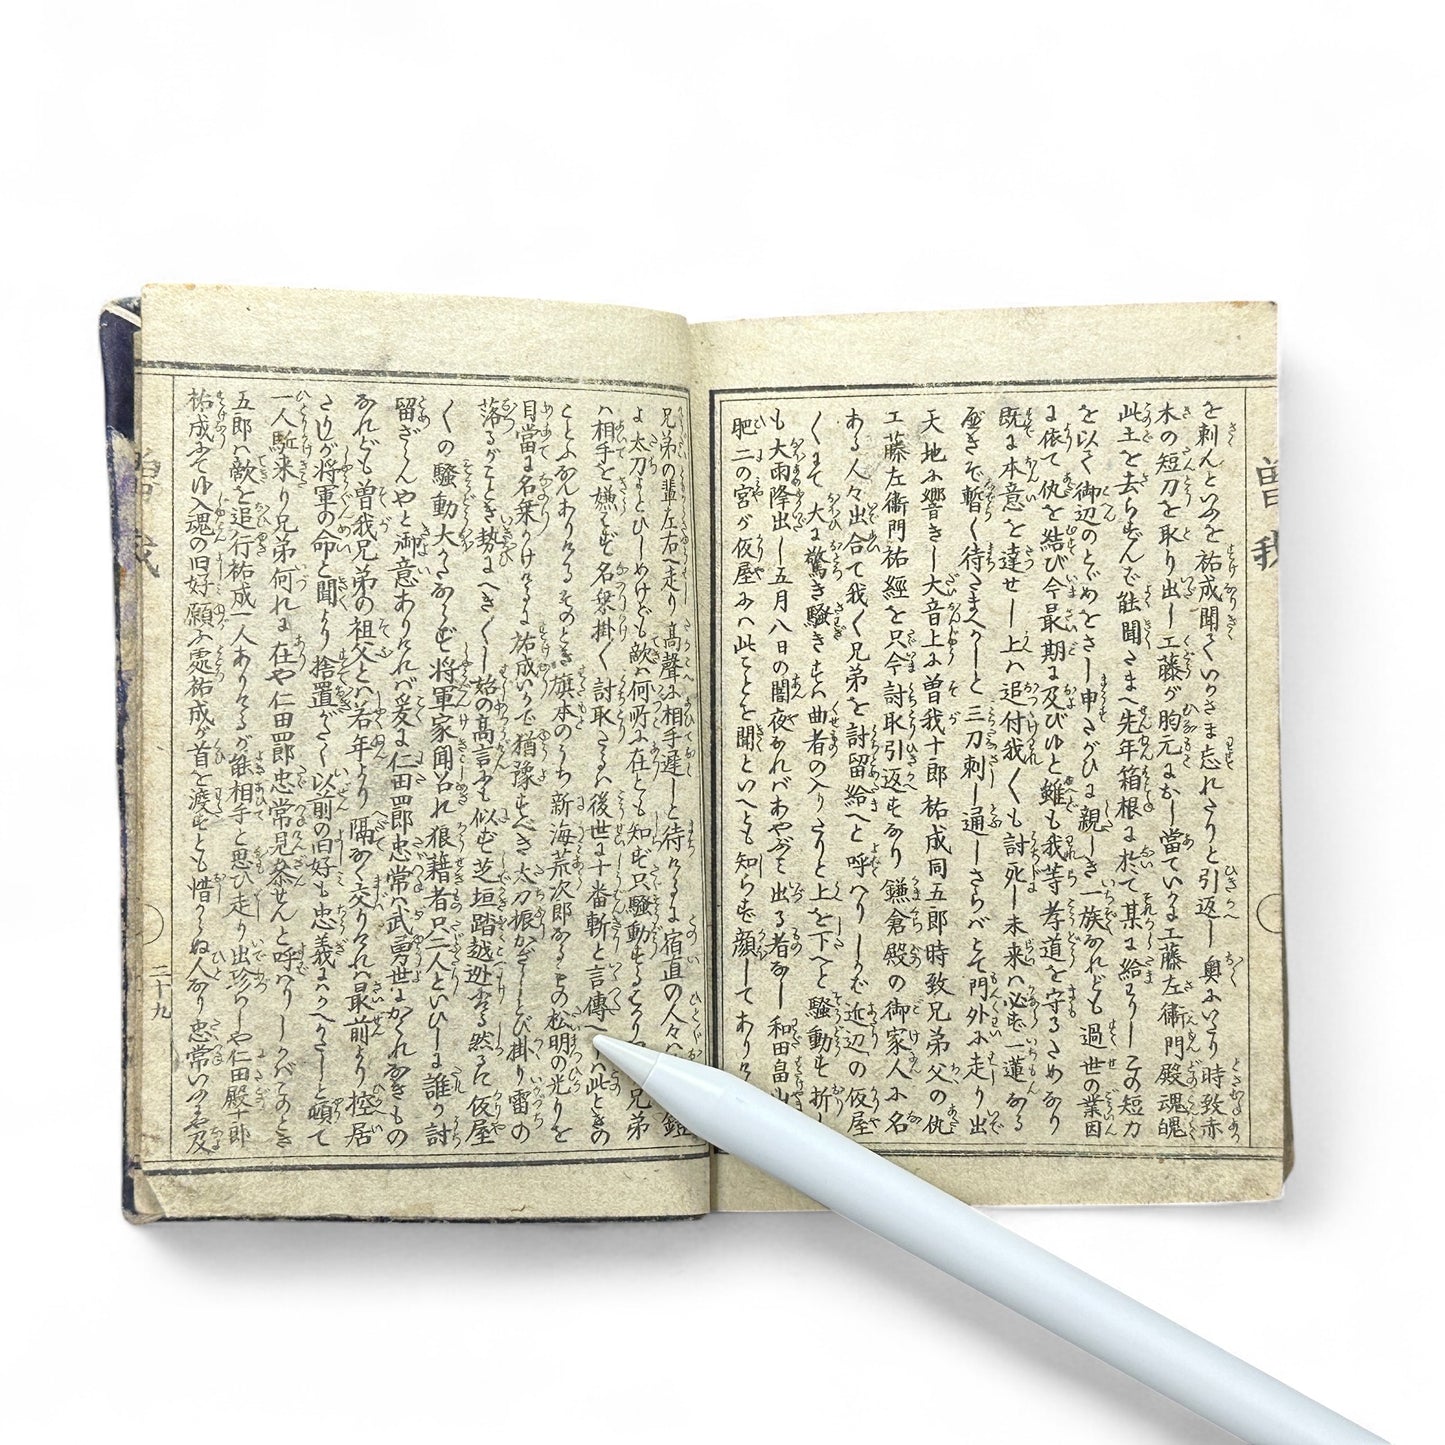 を刺んといふを祐成聞ていかさま忘れたりと引返し奥にいたり時致赤
木の短刀を取り出し工藤が胸元におし當ていかに工藤左衛門殿魂魄
此土を去らずんば能聞たまへ先年箱根に於て某に給りしこの短刀
を以て御辺のとゞめをさし申さがひに親しき一族なれども過世の業因
に依て仇を結び今最期に及びゆと雖も我等孝道を守るためなり
既に本意を達せし上ハ追付我〻も討死し未来ハ必ず一蓮なる
座きぞ暫く待たまへかしと三刀刺し通しさらべとて門外に走り出
天地に響きし大音上に曽我十郎祐成同五郎時致兄弟父の仇
工藤左衛門祐經を只今討取引返すなり鎌倉殿の御家人に名
ある人々出合て我〻兄弟を討留給へと呼ハりしかバ近辺の仮屋
〻にて大に驚き騒きすハ曲者の入りたりと上を下へと騒動す折し
も大雨降出し五月八日の闇夜なれバあやぶミて出る者なし和田畠山
肥二の宮が仮屋にハ此ことを聞といへとも知らず顔してありける
兄弟の輩左右へ走り高聲に相手遅しと待けるに宿直の人々ハ鎧
よ太刀よとひしめけども敵ハ何所に在とも知ず只騒動するばかり兄弟
ハ相手を嫌ハず名乗掛〻討取たるハ後世に十番斬と言傳へしハ此ときの
ことになんありけるそのとき旗本のうち新海荒次郎なるもの松明の光りを
目當に名乗かけけるに祐成いかで猶豫すべき太刀振かざしとび掛り雷の
落るがごとき勢にへき〻し始の高言にも似ず芝垣踏越逃さる然るに仮屋
〻の騒動大かたならず将軍家聞召れ狼藉者只二人といひしに誰か討
留ざらんやと御意ありけれバ爰に仁田四郎忠常ハ武勇世にかくれなきもの
なれども曽我兄弟の祖父とハ若年より隔なく交りけれバ最前より控居
たりしが将軍の命と聞より捨置がたく以前の旧好も忠義にハかへがたしと頓て
一人駈来り兄弟何れに在や仁田四郎忠常見参せんと呼ハりしかバこのとき
五郎ハ敵を追行祐成一人ありけるが能相手と思ひ走り出珍らしや仁田殿十郎
祐成にてゆ入魂の旧好願ふ處祐成が首を渡すとも惜からぬ人なり忠常いふに及
曽我
曽我
二十九